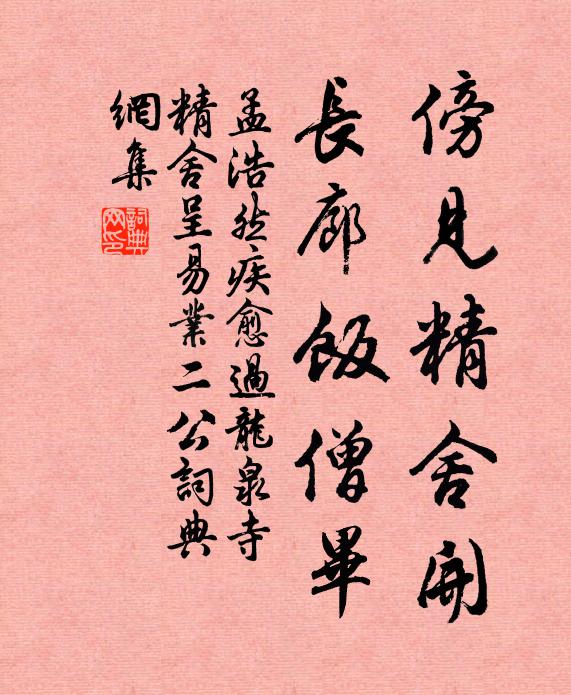 傍見精舍開
長廊飯僧畢
孟浩然疾愈過龍泉寺
精舍呈易業二公詞典
網集
詞典
網印